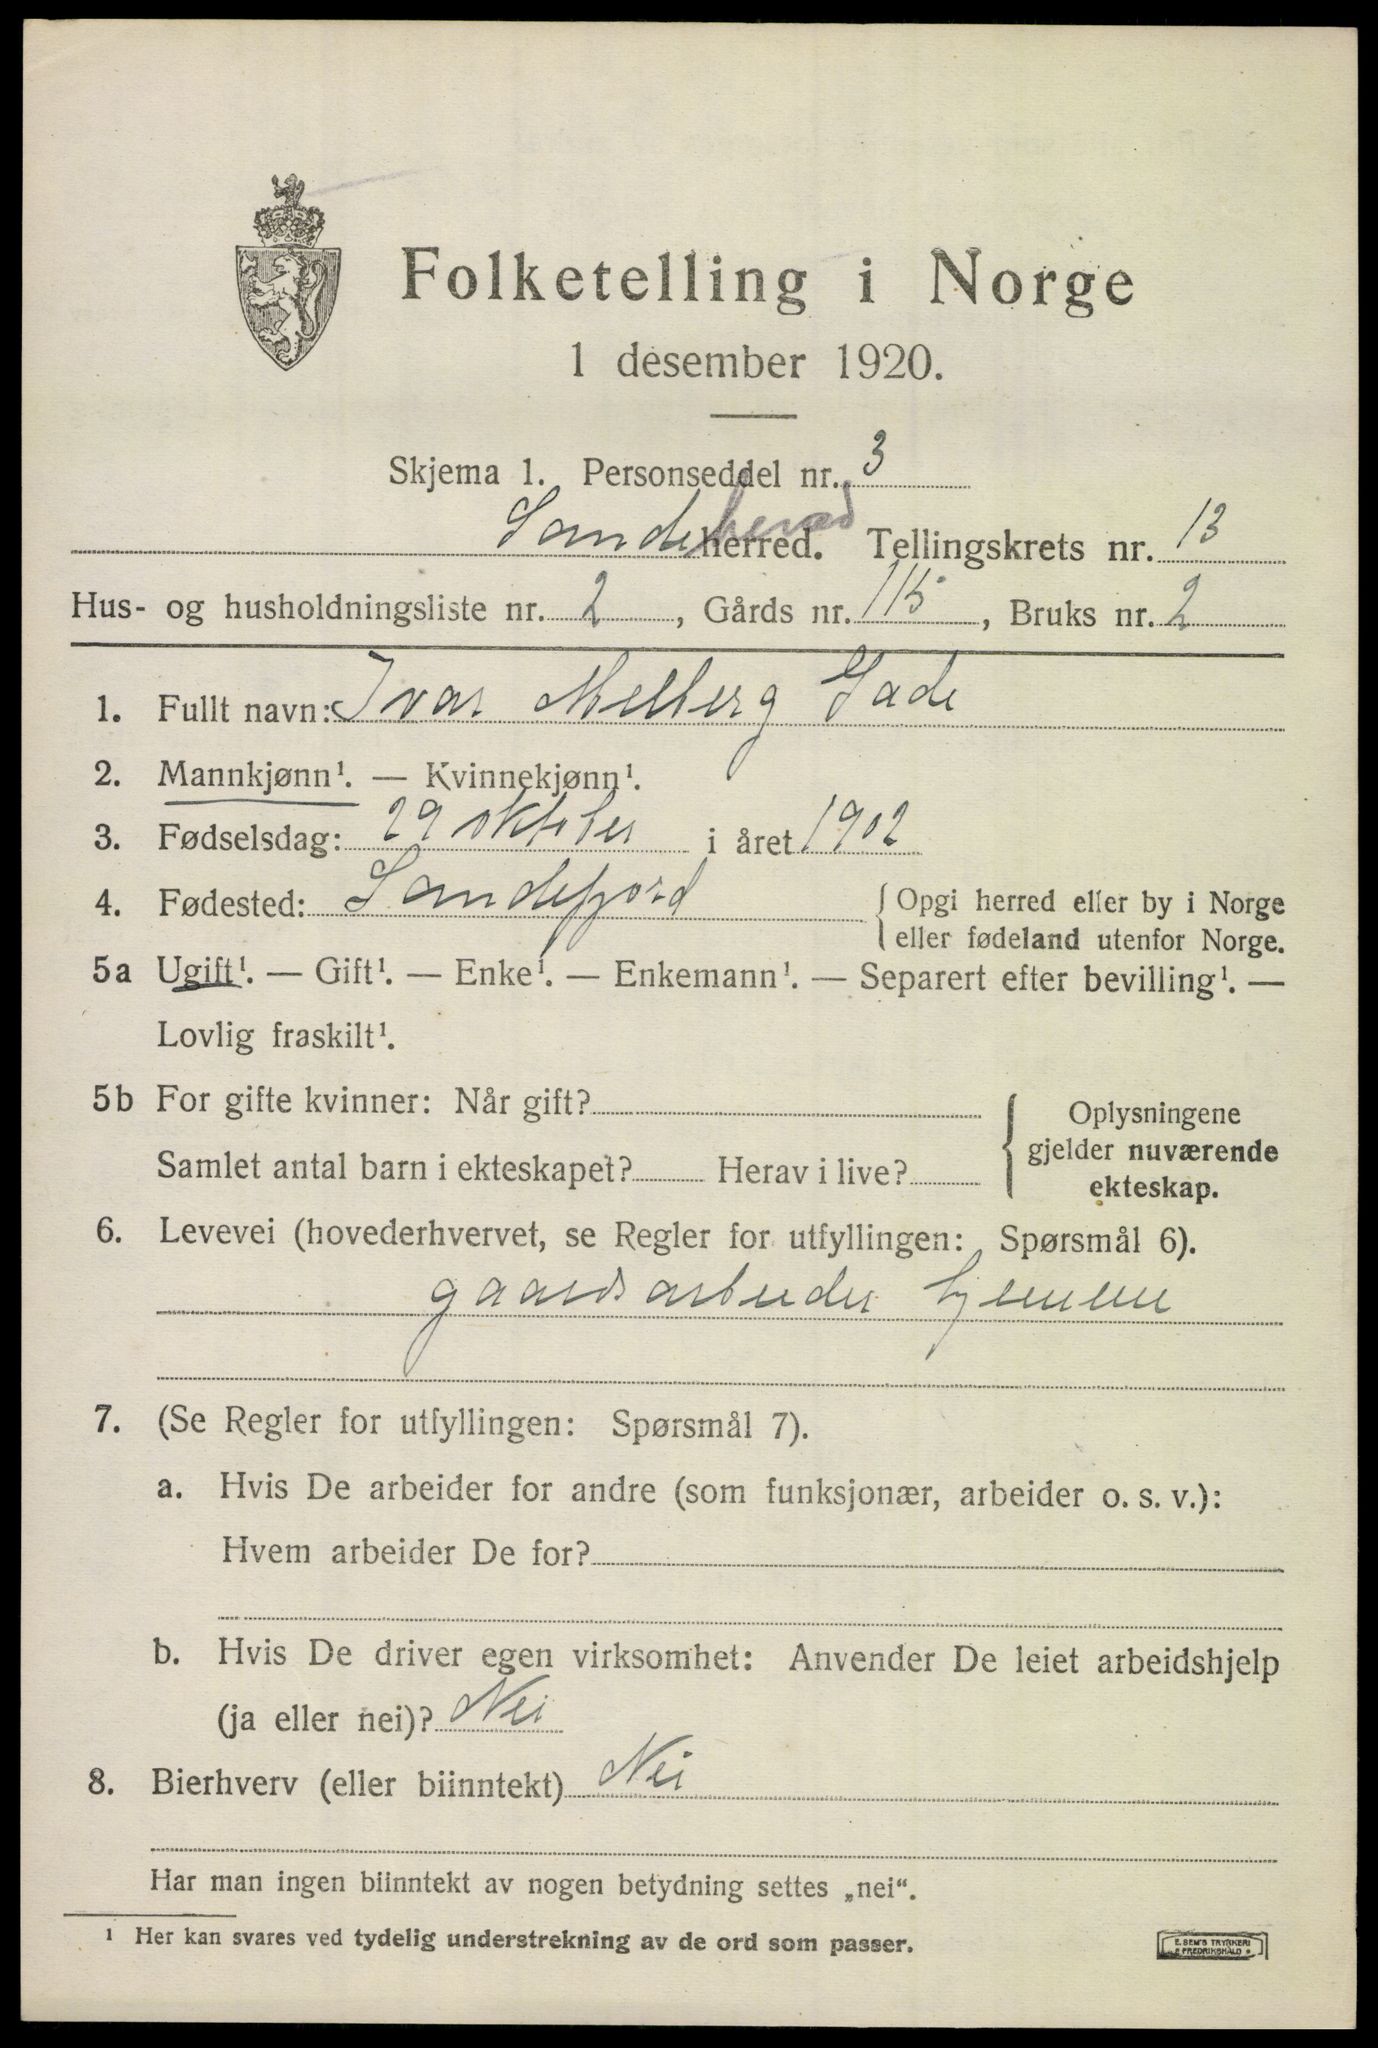 Folketelling i Norge
1 desember 1920.
Skjema 1. Personseddel nr. 3
Sandeherred herred. Tellingskrets nr. 13
Hus- og husholdningsliste nr. 2, Gårds nr. 115, Bruks nr. 2
1. Fullt navn: Ivar Melberg Gade
2. Mannkjønn¹. — Kvinnekjønn¹.
3. Fødselsdag: 29 oktober i året 1902
4. Fødested: Sandefjord { Opgi herred eller by i Norge
eller fødeland utenfor Norge.
5a Ugift¹. — Gift¹. — Enke¹. — Enkemann¹. — Separert efter bevilling¹. —
Lovlig fraskilt¹.
5b For gifte kvinner: Når gift?
Samlet antal barn i ekteskapet? Herav i live?
Oplysningene
gjelder nuværende
ekteskap.
6. Levevei (hovederhvervet, se Regler for utfyllingen: Spørsmål 6).
gaardsarbeider hjemme
7. (Se Regler for utfyllingen: Spørsmål 7).
a. Hvis De arbeider for andre (som funksjonær, arbeider o. s. v.):
Hvem arbeider De for?
b. Hvis De driver egen virksomhet: Anvender De leiet arbeidshjelp
(ja eller nei)? Nei
8. Bierhverv (eller biinntekt) Nei
Har man ingen biinntekt av nogen betydning settes „nei“.
¹ Her kan svares ved tydelig understrekning av de ord som passer.
E. SEM'S TRYKKERI
FREDRIKSHALD